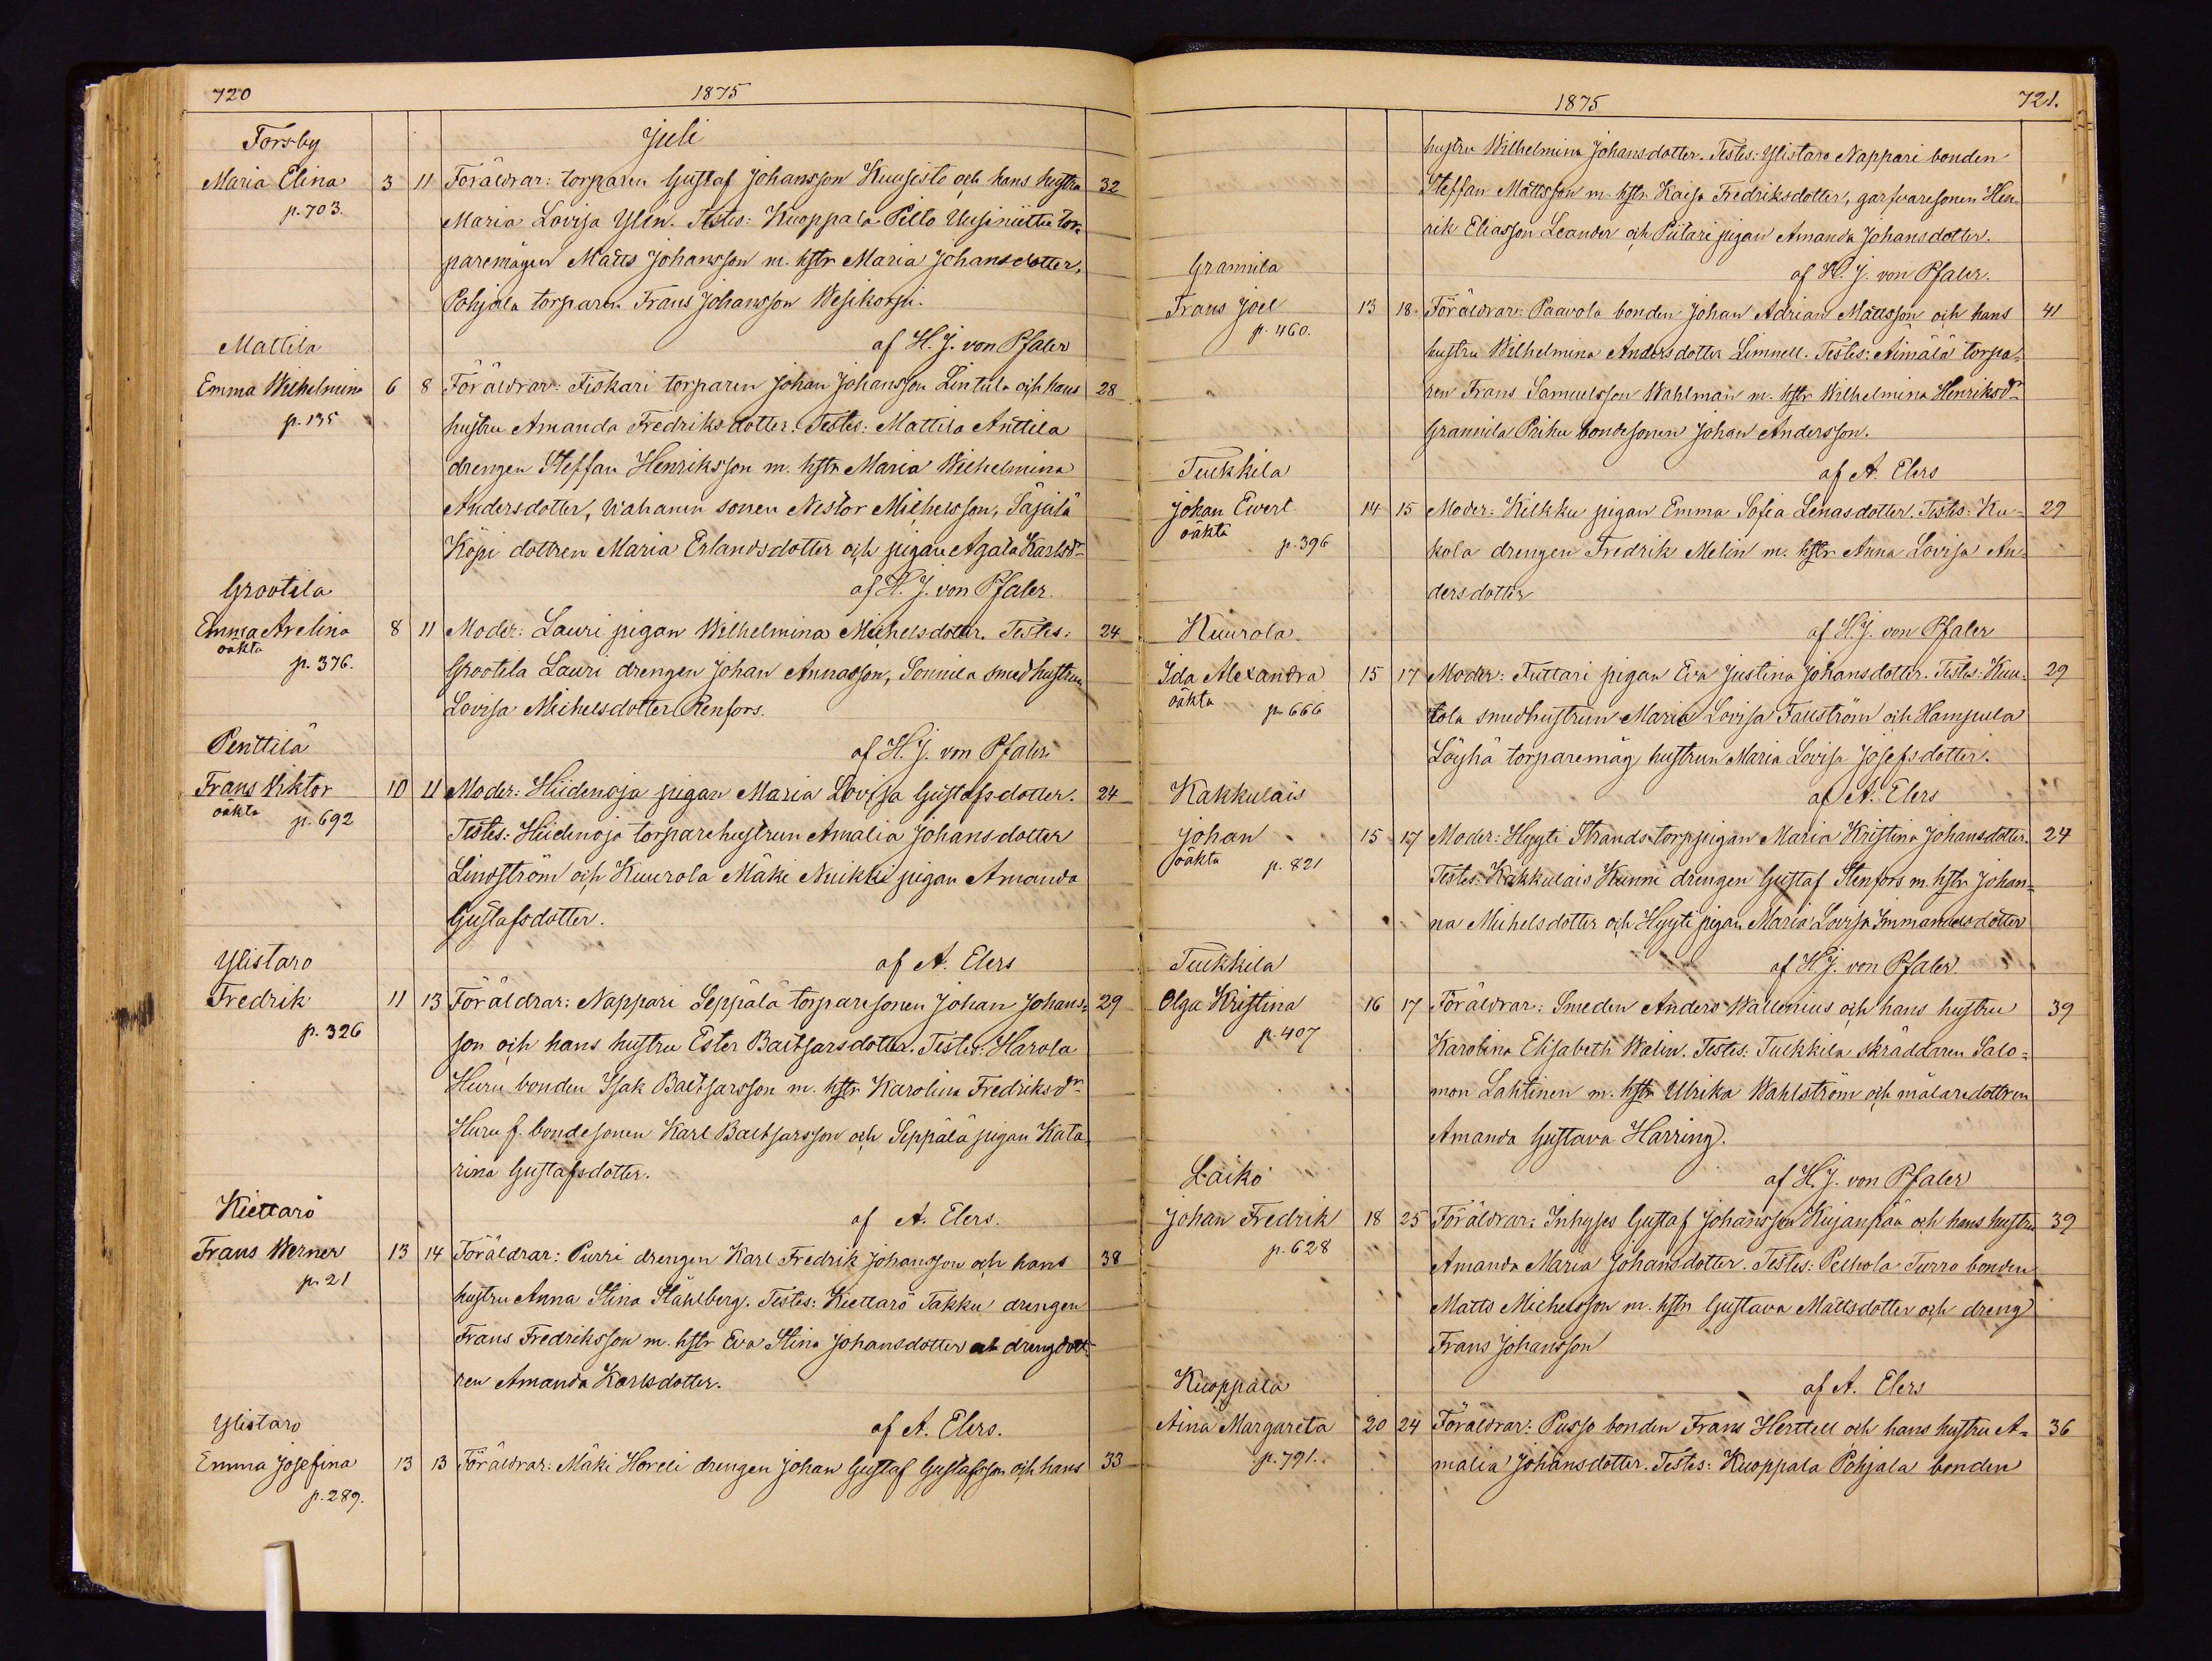 720
1875
Juli
Forsby
Maria Elina 3 11 Föräldrar: torparen Gustaf Johansson Kuusisto och hans hustru 32
p. 703.
Maria Lovisa Ylén. Testes: Kuoppala Pilto Uusiniittu tor-
paremågen Matts Johansson m. hstr Maria Johansdotter,
Pohjala torparen Frans Johansson Wesikorpi.
Mattila
af H. J. von Pfaler
Emma Wilhelmina 6 8 Föräldrar: Fiskari torparen Johan Johansson Lintula och hans 28
p. 135
hustru Amanda Fredriksdotter. Testes: Mattila Anttila
drengen Steffan Henriksson m. hstr Maria Wilhelmina
Andersdotter, Wahanen sonen Nestor Michelsson, Säjälä
Köpi dottren Maria Erlandsdotter och pigan Agata Karlsdr
Grootila
af H. J. von Pfaler.
Emma Avelina 8 11 Moder: Lauri pigan Wilhelmina Michelsdotter. Testes: 24
oäkta
p. 376.
Grootila Lauri drengen Johan Annasson, Sonnila smedhustrun
Lovisa Michelsdotter Renfors.
Penttilä
af H. J. von Pfaler
Frans Viktor 10 11 Moder: Hiidenoja pigan Maria Lovisa Gustafsdotter. 24
oäkta
p. 692
Testes: Hiidenoja torparehustrun Amalia Johansdotter
Lindström och Kuurola Mäki Nuikki pigan Amanda
Gustafsdotter.
Ylistaro
af A. Elers
Fredrik 11 13 Föräldrar: Nappari Seppälä torparesonen Johan Johans- 29
p. 326
son och hans hustru Ester Baltsarsdotter. Testes: Harola
Huru bonden Isak Baltsarsson m. hstr Karolina Fredriksdr
Huru f. bondesonen Karl Baltsarsson och Seppälä pigan Kata-
rina Gustafsdotter.
Kiettarö
af A. Elers.
Frans Werner 13 14 Föräldrar: Purri drengen Karl Fredrik Johansson och hans 38
p. 21
hustru Anna Stina Ståhlberg. Testes: Kiettarö Takku drengen
Frans Fredriksson m. hstr Eva Stina Johansdotter och drengdott-
ren Amanda Karlsdotter.
Ylistaro
af A. Elers.
Emma Josefina 13 13 Föräldrar: Mäki Horeli drengen Johan Gustaf Gustafsson och hans 33
p. 289.
1875
721.
hustru Wilhelmina Johansdotter. Testes: Ylistaro Nappari bonden
Steffan Mattsson m. hstr. Kaisa Fredriksdotter, garfvaresonen Hen-
rik Eliasson Leander och Piitari pigan Amanda Johansdotter.
Grannila
af H. J. von Pfaler.
Frans Joel 13 18 Föräldrar: Paavola bonden Johan Adrian Mattsson och hans 41
p. 460.
hustru Wilhelmina Andersdotter Limnell. Testes: Äimälä torpa-
ren Frans Samuelsson Wahlman m. hstr Wilhelmina Henriksdr
Grannila Prihu bondesonen Johan Andersson.
Tulkkila
af A. Elers
Johan Evert 14 15 Moder: Kilkku pigan Emma Sofia Lenasdotter. Testes: Ku- 29
oäkta
p. 396
kola drengen Fredrik Melin m. hstr Anna Lovisa An-
dersdotter
Kuurola
af H. J. von Pfaler
Ida Alexandra 15 17 Moder: Tuttari pigan Eva Justina Johansdotter. Testes: Kuu- 29
oäkta
p. 666
rola smedhustrun Maria Lovisa Fallström och Hampula
Löyhä torparemåg hustrun Maria Lovisa Josefsdotter.
Kakkulais
af A. Elers
Johan 15 17 Moder: Hyyti Strands torppigan Maria Kristina Johansdotter. 24
oäkta
p. 821
Testes: Kakkulais Kunni drengen Gustaf Stenfors m. hstr Johan-
na Michelsdotter och Hyyti pigan Maria Lovisa Immanuelsdotter
Tulkkila
af H. J. von Pfaler
Olga Kristina 16 17 Föräldrar: Smeden Anders Wallenius och hans hustru 39
p. 407
Karolina Elisabeth Walin. Testes: Tulkkila skräddaren Salo-
mon Lahtinen m. hstr Ulrika Wahlström och målaredottren
Amanda Gustava Harring.
Laiko
af H. J. von Pfaler
Johan Fredrik 18 25 Föräldrar: Inhyses Gustaf Johansson Kujanpää och hans hustru 39
p. 628
Amanda Maria Johansdotter. Testes: Pelhola Turro bonden
Matts Michelsson m. hstr Gustava Mattsdotter och dreng
Frans Johansson
Kuoppala
af A. Elers
Aina Margareta 20 24 Föräldrar: Pusso bonden Frans Herttell och hans hustru A- 36
p. 791.
malia Johansdotter. Testes: Kuoppala Pohjala bonden